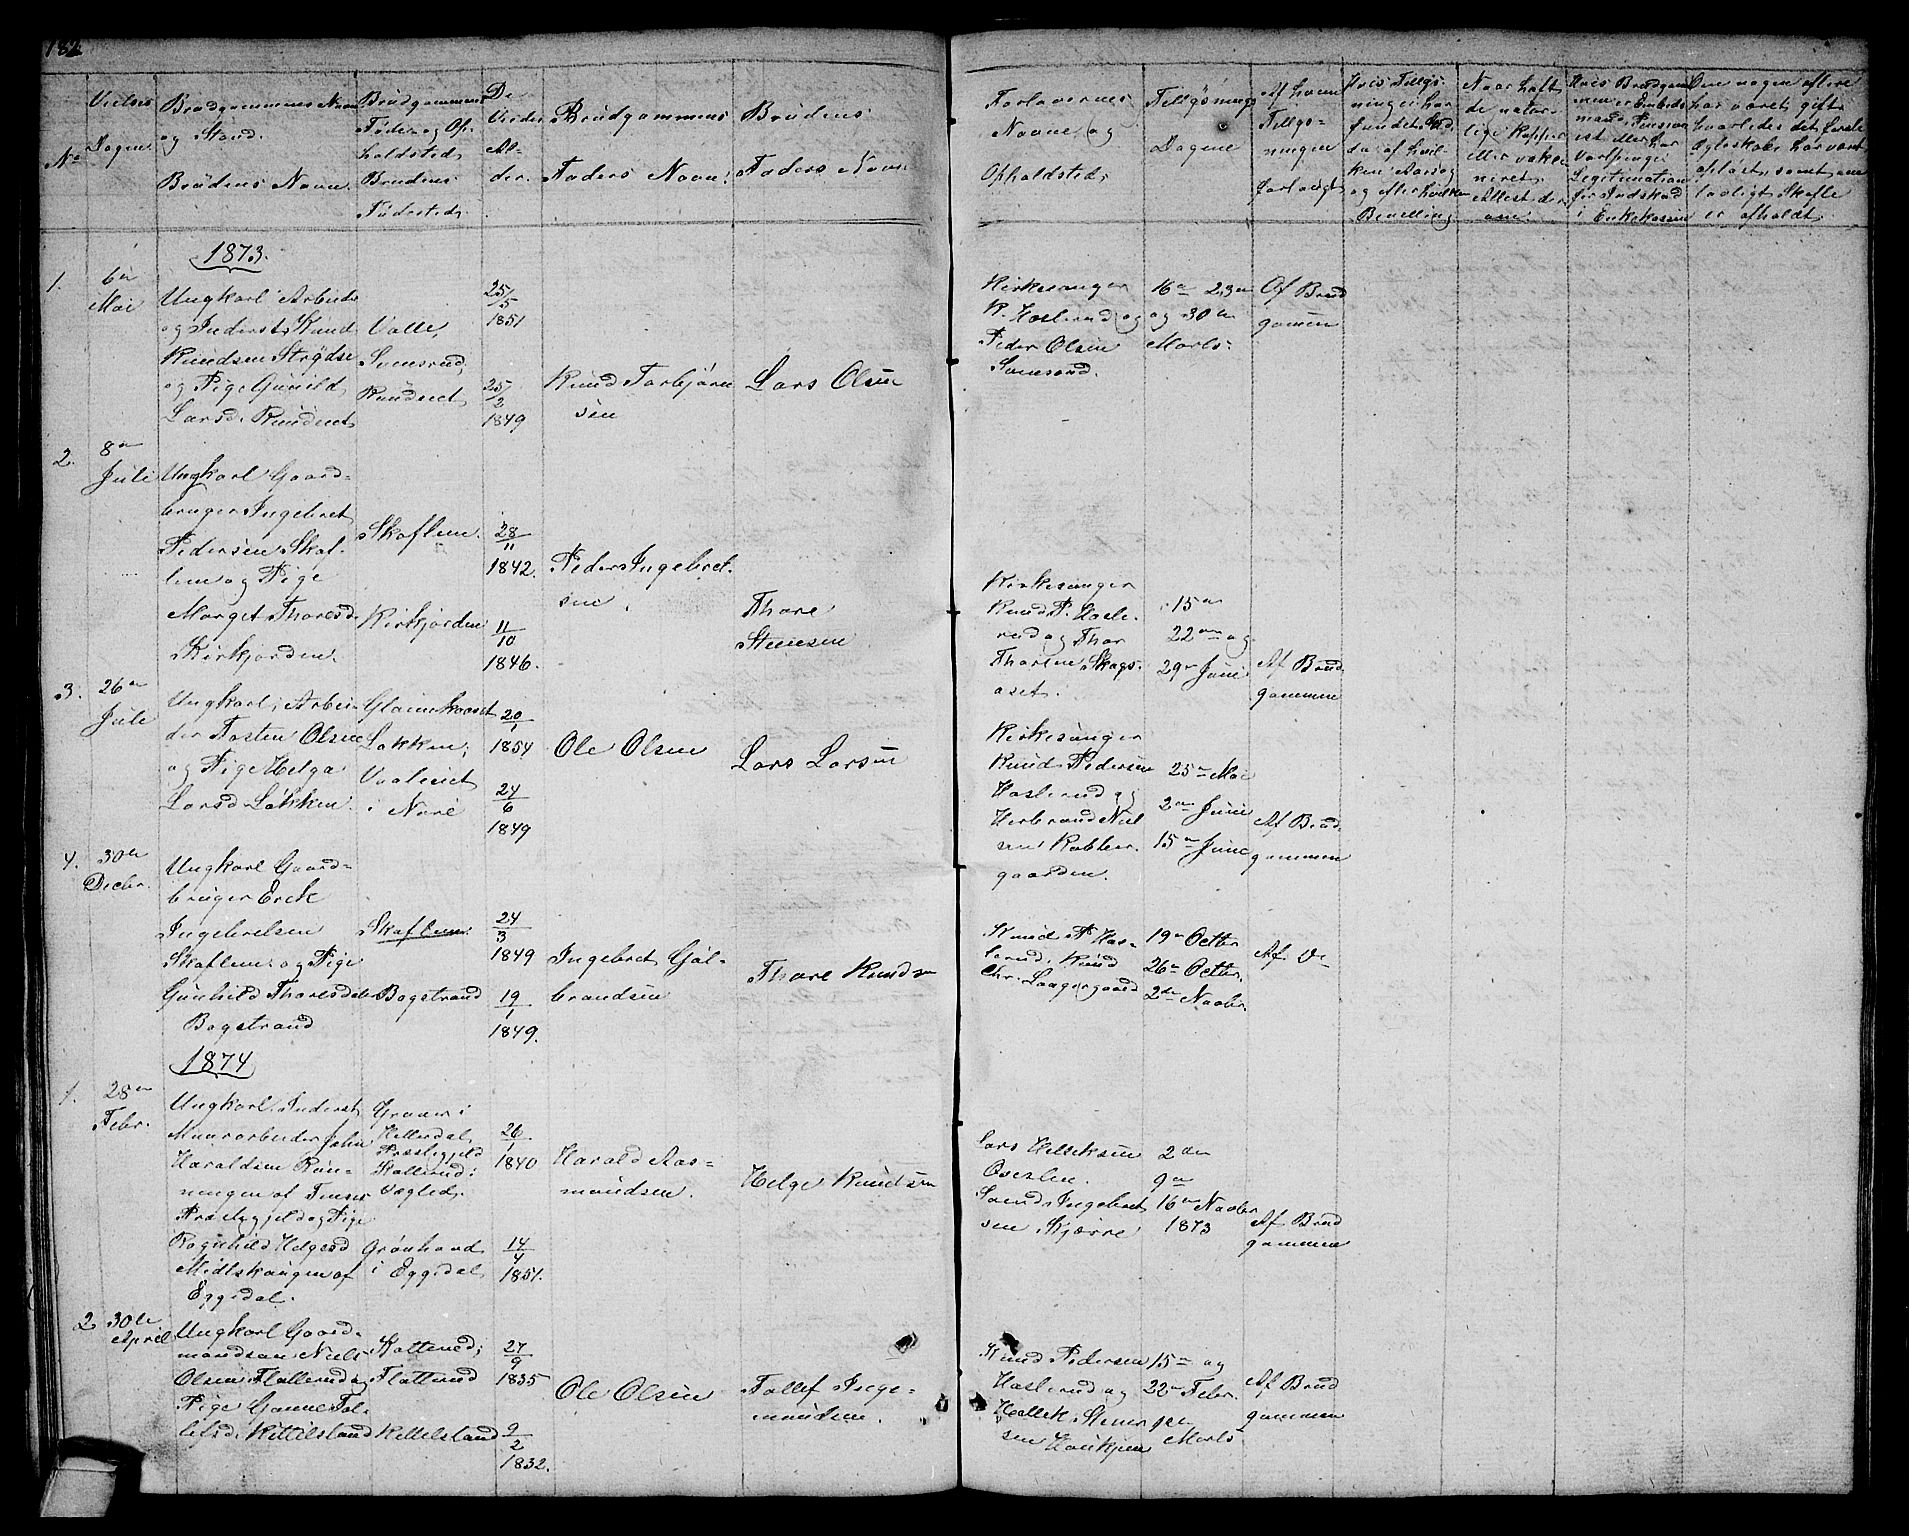 182
No
Vielses
Dagen
Brudgommens Navn
og Stand.
Brudens Navn.
Brudgommens
Føde- og Op-
holdsted,
Brudens
Fødested.
De
Viedes
Al-
der.
Brudgommens
Faders Navn.
Brudens
Faders Navn
Forlovernes
Navne og
Opholdsted.
Tillysnings
Dagene
Af hvem
Tillys-
ningen
forlangt
Hvis Tillys-
ning ei har
fundet Sted
da af hvil-
ken Aarsag
og efter hvilken
Bevilling
Naar haft
de natur-
lige Kopper
eller vakci-
neret.
Attest der-
om.
Hvis Brudgom-
men er Embeds-
mand, Pension-
ist eller har
Vartpenge
Legitimation
for Indskud
i Enkekassen
Om nogen af dere
har været gift
hvorledes det forste
Ægteskab har været
opløst, samt om
lovligt Skifte
er afholdt.
1873.
1.
6te
Mai
Ungkarl Arbeider
og Inderst Knud
Knudsen Strødse
og Pige Gunild
Larsd. Rundset
Valle,
Svensrud,
Rundset
25/5
1851
25/2
1849
Knud Torbjørn
sen
Lars Olsen
Kirkesanger
K. Haslerud og
Peder Olsen
Svensrud.
16de 23de
og 30te
Marts-
Af Brud
gomen
2.
8de
Juli
Ungkarl Gaard-
bruger Ingebret
Pedersen Skaf-
lem og Pige
Marget Thoresd.
Kirkjorden.
Skaflem.
Kirkjorden
28/11
1842.
11/10
1846.
Peder Ingebret-
sen.
Thore
Steensen
Kirkesanger
Knud P. Hasle-
rud og Thor
Thorsen Skags-
aset.
15de
22de og
29de Juni
Af Brud
gommen
3.
26de
Juli
Ungkarl, Arbei-
der Tosten Olsen
og Pige Helga
Larsd. Løkken.
Løkken,
i Nore
20/1
1854
24/6
1849
Ole Olsen
Lars Larsen
Kirkesanger
Knud Pedersen
Haslerud og
Herbrand Niel
sen Kobber-
gaarden.
25de Mai
2den Juni
15de Juni
Af Brud-
gommen
4.
30te
Decbr.
Ungkarl Gaard-
bruger Erek
Ingebretsen
Skaflem og Pige
Gunhild Thoresdtr
Bogstrand
Skaflem:
Bogstrand
24/3
1849
19/1
1849.
Ingebret Gul-
brandsen
Thore Knudsen
Knud P. Has-
lerud, Knud
Chr. Laagergaard
19de Octbr
26de Octbr.
2den Novbr.
Af Do
1874
1.
28de
Febr.
Ungkarl Inderst
Muurarbeider John
Haraldsen Run-
ningen af Tinses
Præstegjeld og Pige
Ragnhild Helgesd
Midtskaugen af
Eggedal.
Graaer i
Hitterdal
Præstegjeld
Grønhovd
i Eggedal,
26/1
1840
14/4
1851.
Harald Aas-
mundsen.
Helge Knudsen
Lars Helleksen
Svend Ingebret
sen Skjærre
2den
9de
16de Novbr
1873
Af Brud
gommen
2
30te
April
Ungkarl Gaard-
mandssøn Niels
Olsen Flatterud og
Pige Gunne Tol-
lefsd. Kittilsland
Flatterud
Kittelsland
27/9
1835
9/2
1832.
Ole Olsen
Tollef Inge-
mundsen.
Knud Pedersen
Haslerud og
Hellek Stener
sen
15de og
22de Febr.
1ste
Marts
Af Brud
gommen